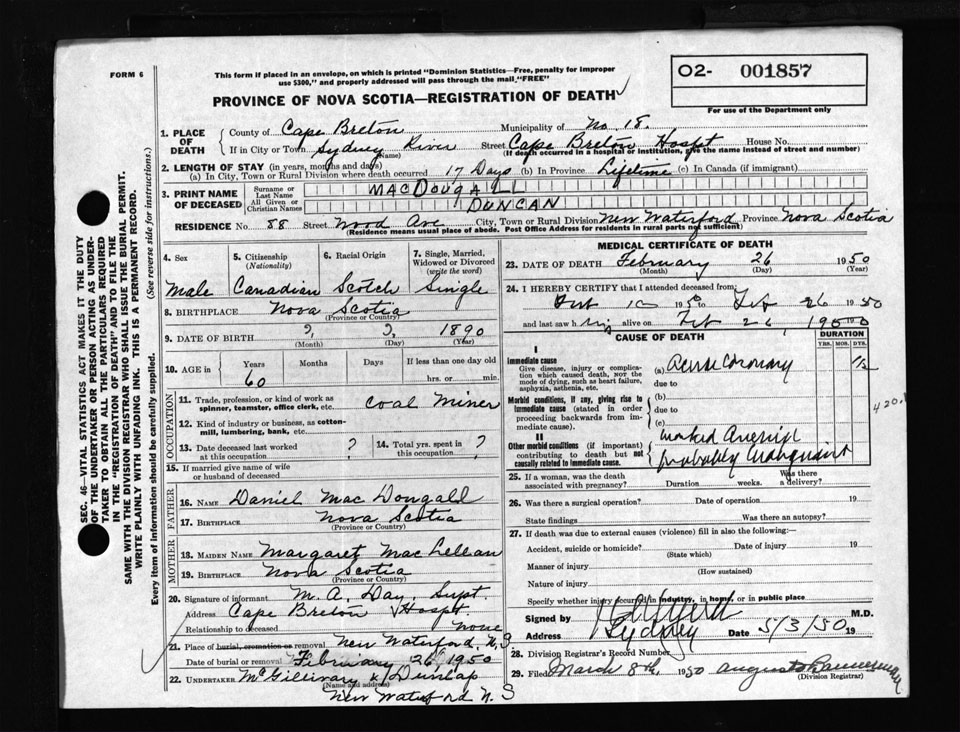 FORM 6
This form if placed in an envelope, on which is printed "Dominion Statistics—Free, penalty for improper
use $300," and properly addressed will pass through the mail "FREE"
PROVINCE OF NOVA SCOTIA—REGISTRATION OF DEATH
02- 001857
For use of the Department only
1. PLACE OF DEATH
County of Cape Breton Municipality of No 18.
If in City or Town Sydney River Street Cape Breton Hospt House No.
(Name) (If death occurred in a hospital or institution, give the name instead of street and number)
2. LENGTH OF STAY (in years, months and days)
(a) In City, Town or Rural Division where death occurred 17 Days (b) In Province Lifetime (c) In Canada (if immigrant)
3. PRINT NAME OF DECEASED
Surname or Last Name MACDOUGALL
All Given or Christian Names DUNCAN
RESIDENCE No. 58 Street Wood Ave City, Town or Rural Division New Waterford Province Nova Scotia
(Residence means usual place of abode. Post Office Address for residents in rural parts not sufficient)
4. Sex
Male
5. Citizenship
(Nationality)
Canadian
6. Racial Origin
Scotch
7. Single, Married,
Widowed or Divorced
(write the word)
Single
8. BIRTHPLACE Nova Scotia
(Province or Country)
9. DATE OF BIRTH ? ? 1890
(Month) (Day) (Year)
10. AGE in
Years Months Days If less than one day old
60 hrs. or min.
OCCUPATION
11. Trade, profession, or kind of work as
spinner, teamster, office clerk, etc. Coal Miner
12. Kind of industry or business, as cotton-
mill, lumbering, bank, etc.
13. Date deceased last worked
at this occupation ?
14. Total yrs. spent in
this occupation ?
15. If married give name of wife
or husband of deceased
FATHER
16. Name Daniel MacDougall
17. BIRTHPLACE Nova Scotia
(Province or Country)
MOTHER
18. MAIDEN NAME Margaret MacLellan
19. BIRTHPLACE Nova Scotia
(Province or Country)
20. Signature of informant M. A. Day, Supt.
Address Cape Breton Hospt.
Relationship to deceased None
21. Place of burial, cremation or removal New Waterford, N.S
Date of burial or removal February 26 1950
22. UNDERTAKER McGillivary & Dunlap
(Name and address)
New Waterford N. S
MEDICAL CERTIFICATE OF DEATH
23. DATE OF DEATH February 26 1950
(Month) (Day) (Year)
24. I HEREBY CERTIFY that I attended deceased from:
1950 to Feb 26 1950
and last saw him alive on Feb 26, 1950
CAUSE OF DEATH
DURATION
YRS. MOS. DYS.
I
Immediate cause
Give disease, injury or complica-
tion which caused death, not the
mode of dying, such as heart failure,
asphyxia, asthenia, etc.
(a) Coronary
due to
Morbid conditions, if any, giving rise to
immediate cause (stated in order
proceeding backwards from im-
mediate cause).
(b)
due to
(c)
420.1
II
Other morbid conditions (if important)
contributing to death but not
causally related to immediate cause.
Marked
probably
25. If a woman, was the death
associated with pregnancy? Duration weeks. Was there
a delivery?
26. Was there a surgical operation? Date of operation 19
State findings Was there an autopsy?
27. If death was due to external causes (violence) fill in also the following:
Accident, suicide or homicide? Date of injury 19
(State which)
Manner of injury
(How sustained)
Nature of injury
Specify whether injury occurred in industry, in home, or in public place
Signed by M.D.
Address Sydney Date 5/3/50 19
28. Division Registrar's Record Number
29. Filed March 8th, 1950
(Division Registrar)
SEC. 46—VITAL STATISTICS ACT MAKES IT THE DUTY
OF THE UNDERTAKER OR PERSON ACTING AS UNDER-
TAKER TO OBTAIN ALL THE PARTICULARS REQUIRED
IN THE "REGISTRATION OF DEATH" AND TO FILE THE
SAME WITH THE DIVISION REGISTRAR WHO SHALL ISSUE THE BURIAL PERMIT.
WRITE PLAINLY WITH UNFADING INK. THIS IS A PERMANENT RECORD.
Every item of information should be carefully supplied. (See reverse side for instructions.)